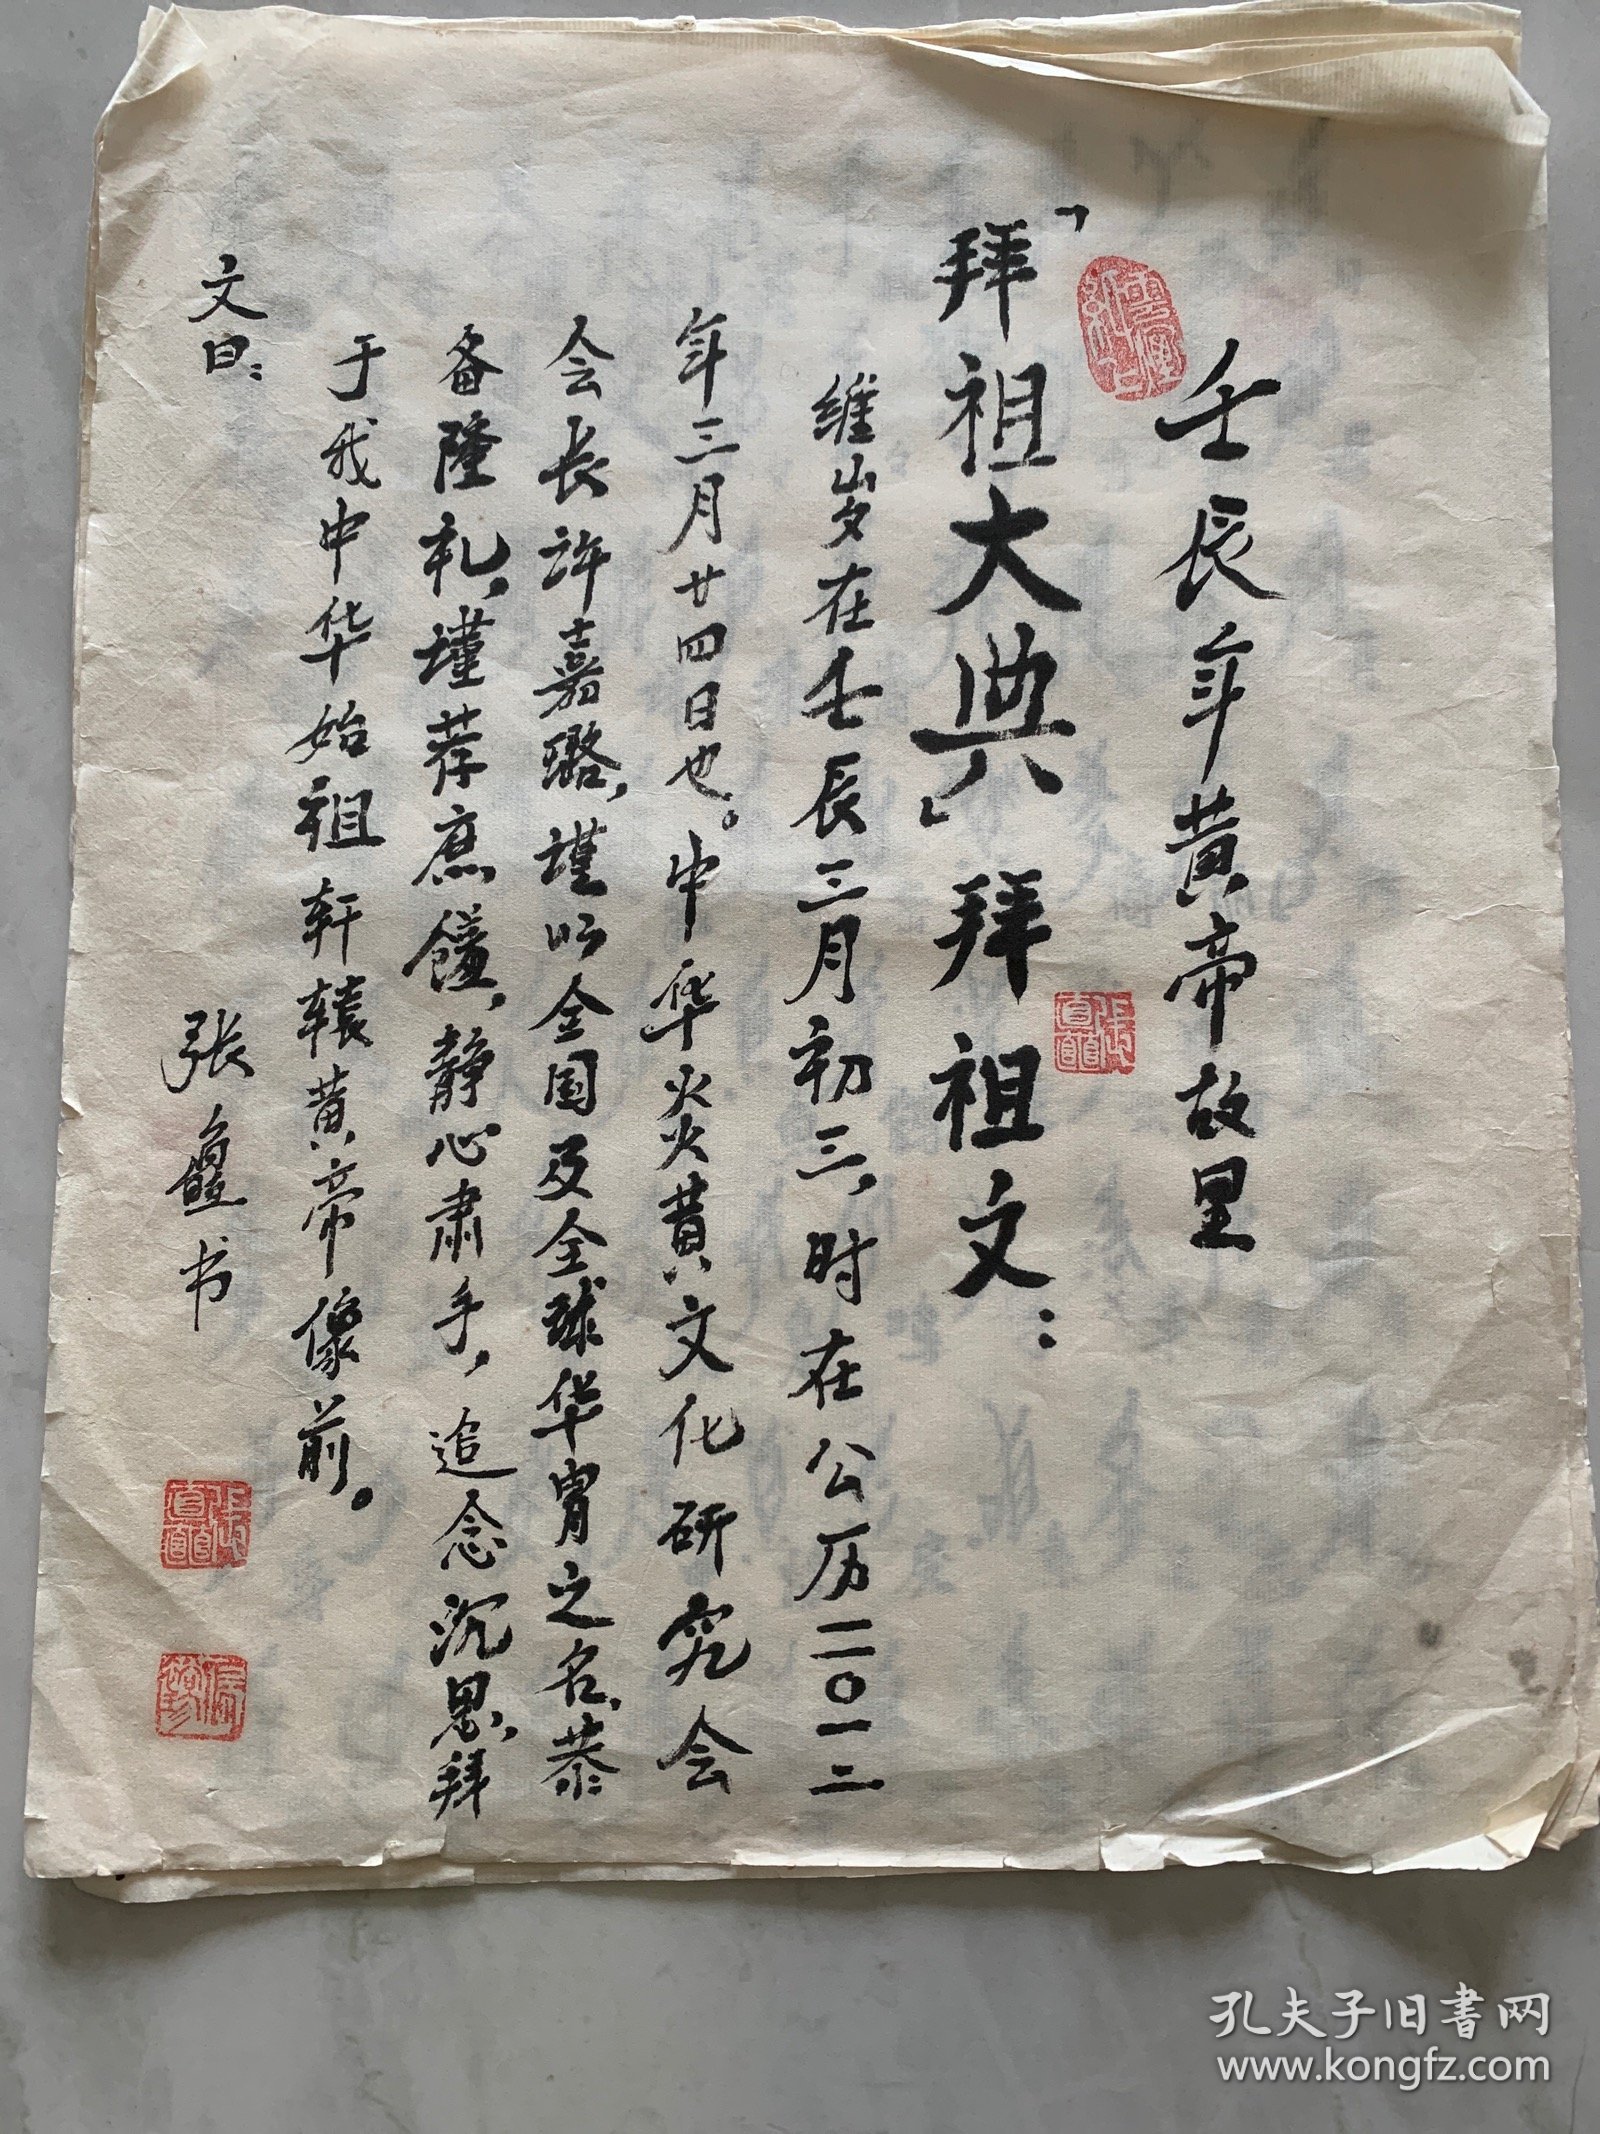 壬辰年黄帝故里
「拜祖大典」拜祖文：
维岁在壬辰三月初三，时在公历二〇一二
年三月廿四日也。中华炎黄文化研究会
会长许嘉璐，谨以全国及全球华胄之名，恭
备隆礼，谨荐庶馐，静心肃手，追念沉思，拜
于我中华始祖轩辕黄帝像前。
文曰：
书
孔夫子旧书网
www.kongfz.com